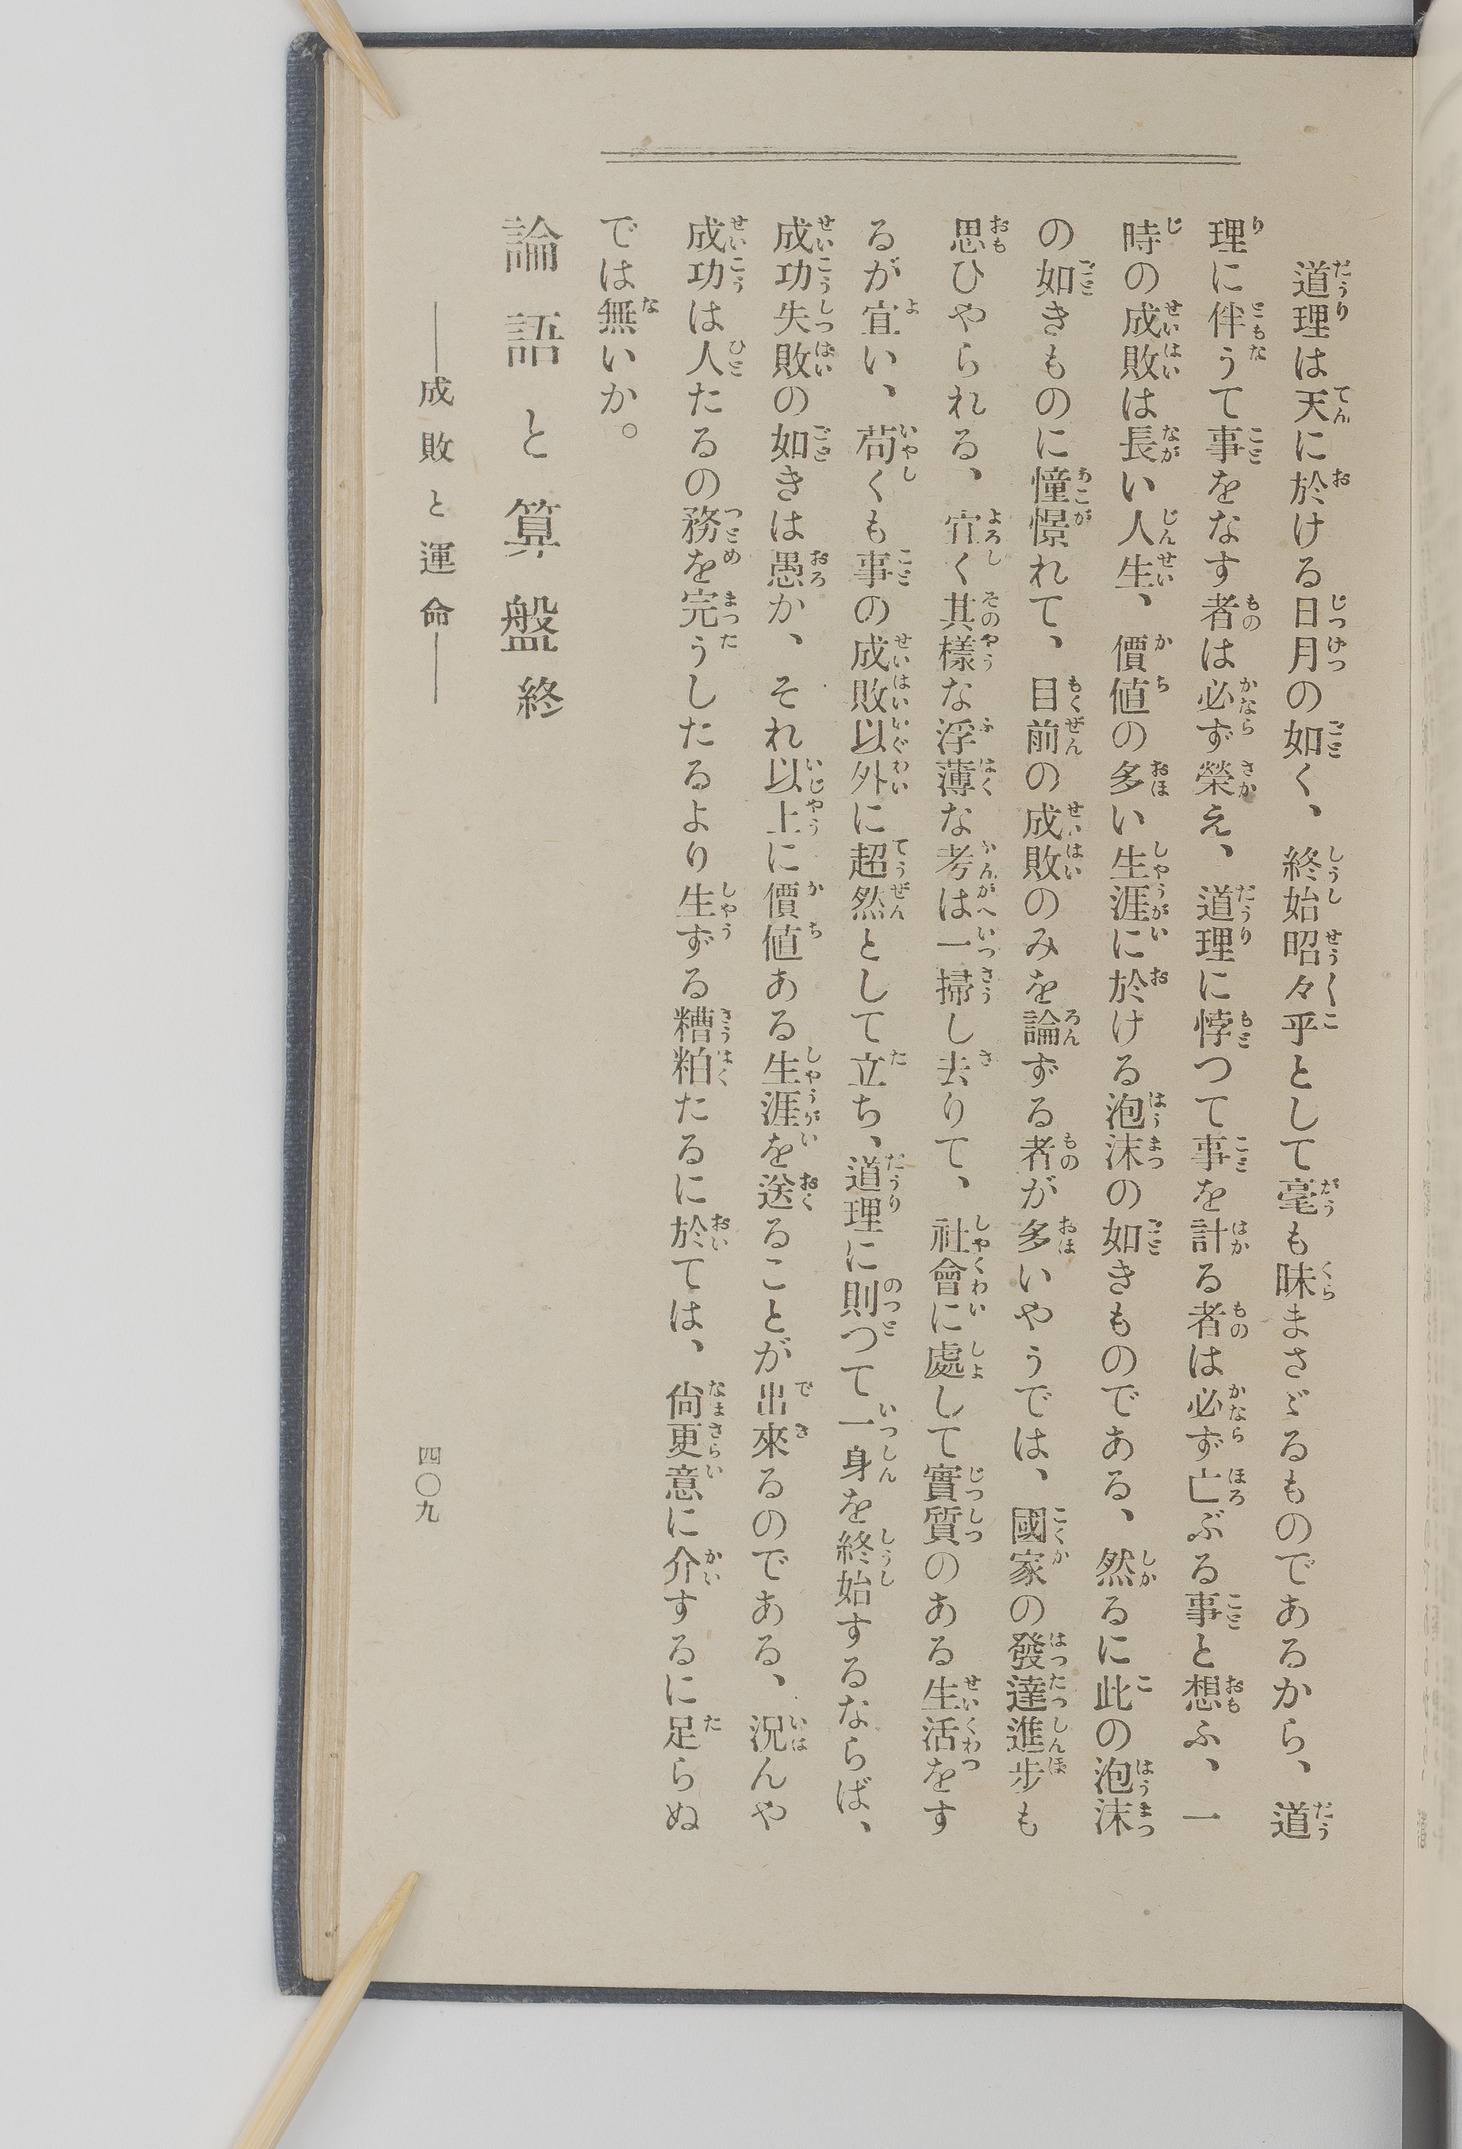 道理は天に於ける日月の如く、終始昭々乎として毫も昧まさゞるものであるから、道
理に伴うて事をなす者は必ず榮え、道理に悖つて事を計る者は必ず亡ぶる事と想ふ、一
時の成敗は長い人生、價値の多い生涯に於ける泡沫の如きものである、然るに此の泡沫
の如きものに憧憬れて、目前の成敗のみを論ずる者が多いやうでは、國家の發達進步も
思ひやられる、宜く其樣な浮薄な考は一掃し去りて、社會に處して實質のある生活をす
るが宜い、苟くも事の成敗以外に超然として立ち、道理に則つて一身を終始するならば、
成功失敗の如きは愚か、それ以上に價値ある生涯を送ることが出來るのである、況んや
成功は人たるの務を完うしたるより生ずる糟粕たるに於ては、尙更意に介するに足らぬ
では無いか。
論語と算盤終
――成敗と運命――
四〇九